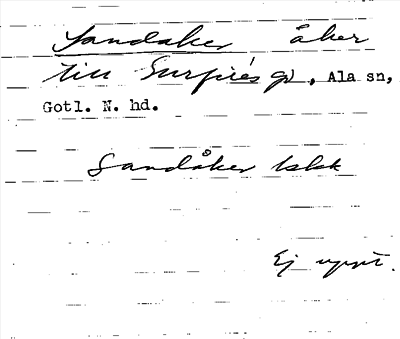 Sandåker åker
till Surpies gd, Ala sn,
Gotl. N. hd.
Sandåker
Ej uppt.